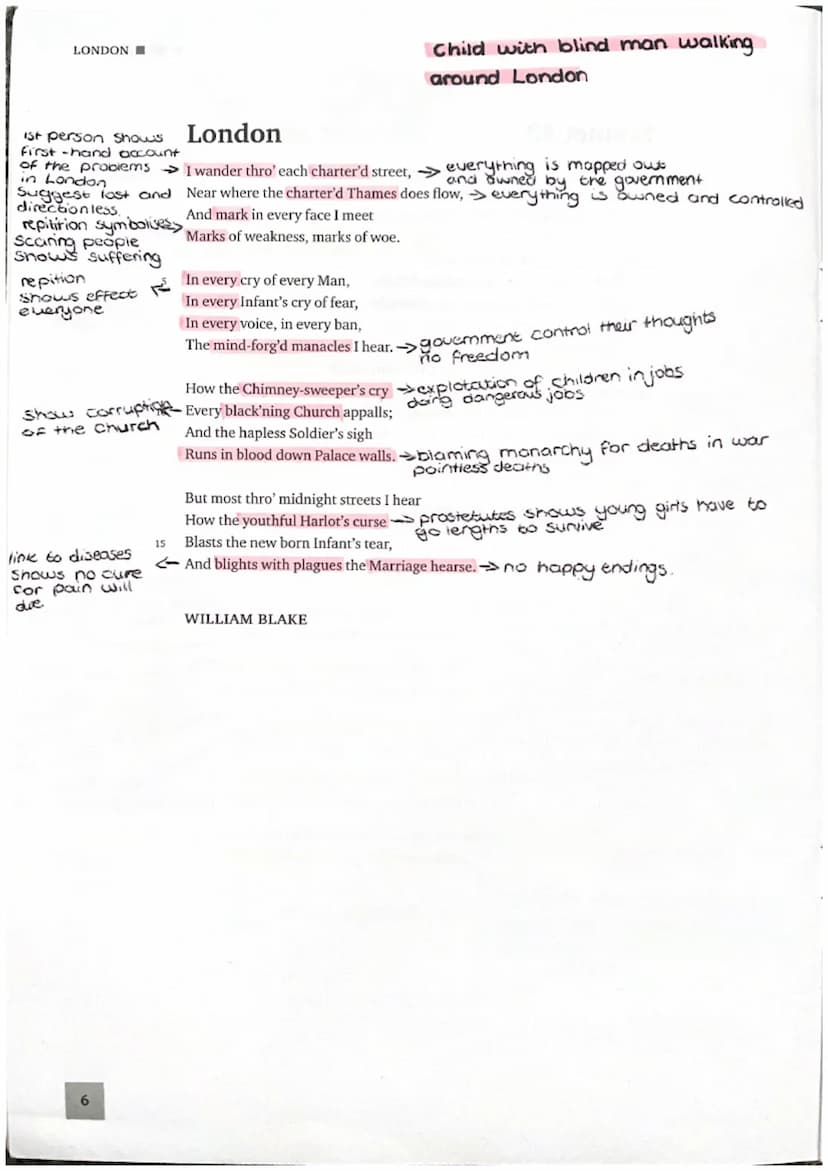 LONDON ■
Child with blind man walking
around London
London
1st person shows
first-hand account
of the problems →
in London
Suggest lost and
directionless.
I wander thro' each charter'd street, → everything is mapped out
and owned by the government
Near where the charter'd Thames does flow, → everything is owned and controlled
And mark in every face I meet
repitition symbolises
Scaring people
Shows suffering
Marks of weakness, marks of woe.
repition
shows effect
everyone
In every cry of every Man,
5
In every Infant's cry of fear,
In every voice, in every ban,
The mind-forg'd manacles I hear. → government control their thoughts
no freedom
How the Chimney-sweeper's cry → explotation of children in jobs
doing dangerous jobs
show corruption
of the church
Every black'ning Church appalls;
And the hapless Soldier's sigh
Runs in blood down Palace walls. → blaming monarchy for deaths in war
pointless deaths
But most thro' midnight streets I hear
How the youthful Harlot's curse → prostetutes shows young girls have to
go lengths to survive
15 Blasts the new born Infant's tear,
link to diseases
shows no cure
for pain will
due
← And blights with plagues the Marriage hearse. → no happy endings.
WILLIAM BLAKE
6